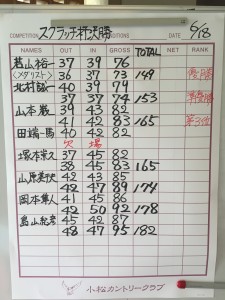 COMPETITION スクラッチ杯決勝 CONDITIONS 6/18
NAMES OUT IN GROSS TOTAL NET RANK
葛山裕一 37 39 76
(メダリスト) 36 37 73 149 優勝
北村誠一 40 39 79
37 37 74 153 準優勝
山本巌 39 43 82
41 42 83 165 第3位
田端一馬 40 42 82
欠 場
塚本栄久 37 45 82
38 45 83 165
山原美代 42 43 85
42 47 89 174
岡本隼人 41 45 86
42 50 92 178
島山紀彦 45 42 87
48 47 95 182
小松カントリークラブ